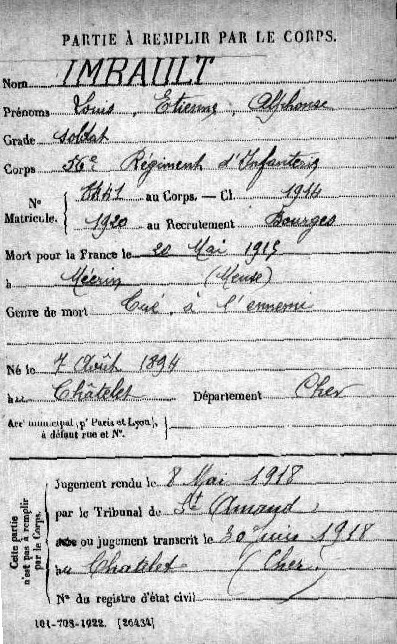 PARTIE À REMPLIR PAR LE CORPS.
Nom IMBAULT
Prénoms Louis, Etienne, Alphonse
Grade soldat
Corps 56e Régiment d'Infanterie
N° Matricule. { 8441 au Corps. — Cl. 1914
1920 au Recrutement Bourges
Mort pour la France le 20 Mai 1915
à Mécrin (Meuse)
Genre de mort Tué à l'ennemi
Né le 7 Août 1894
à Châtelet Département Cher
Arr. municipal (pr Paris et Lyon), à défaut rue et N°.
Cette partie n'est pas à remplir par le Corps.
Jugement rendu le 8 Mai 1918
par le Tribunal de St Amand
ou jugement transcrit le 30 juin 1918
au Chatelet (Cher)
N° du registre d'état civil
101-708-1922. [26434]